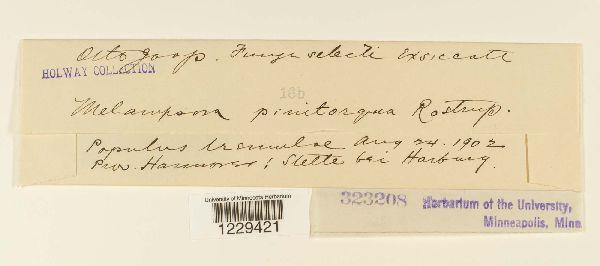 Otto Jaap. Fungi selecti exsiccati
HOLWAY COLLECTION
16b
Melampsora pinitorqua Rostrup.
Populus tremulae Aug 24. 1902
Prov. Hannover: Stelle bei Harburg.
University of Minnesota Herbarium
1229421
323208
Herbarium of the University,
Minneapolis, Minn